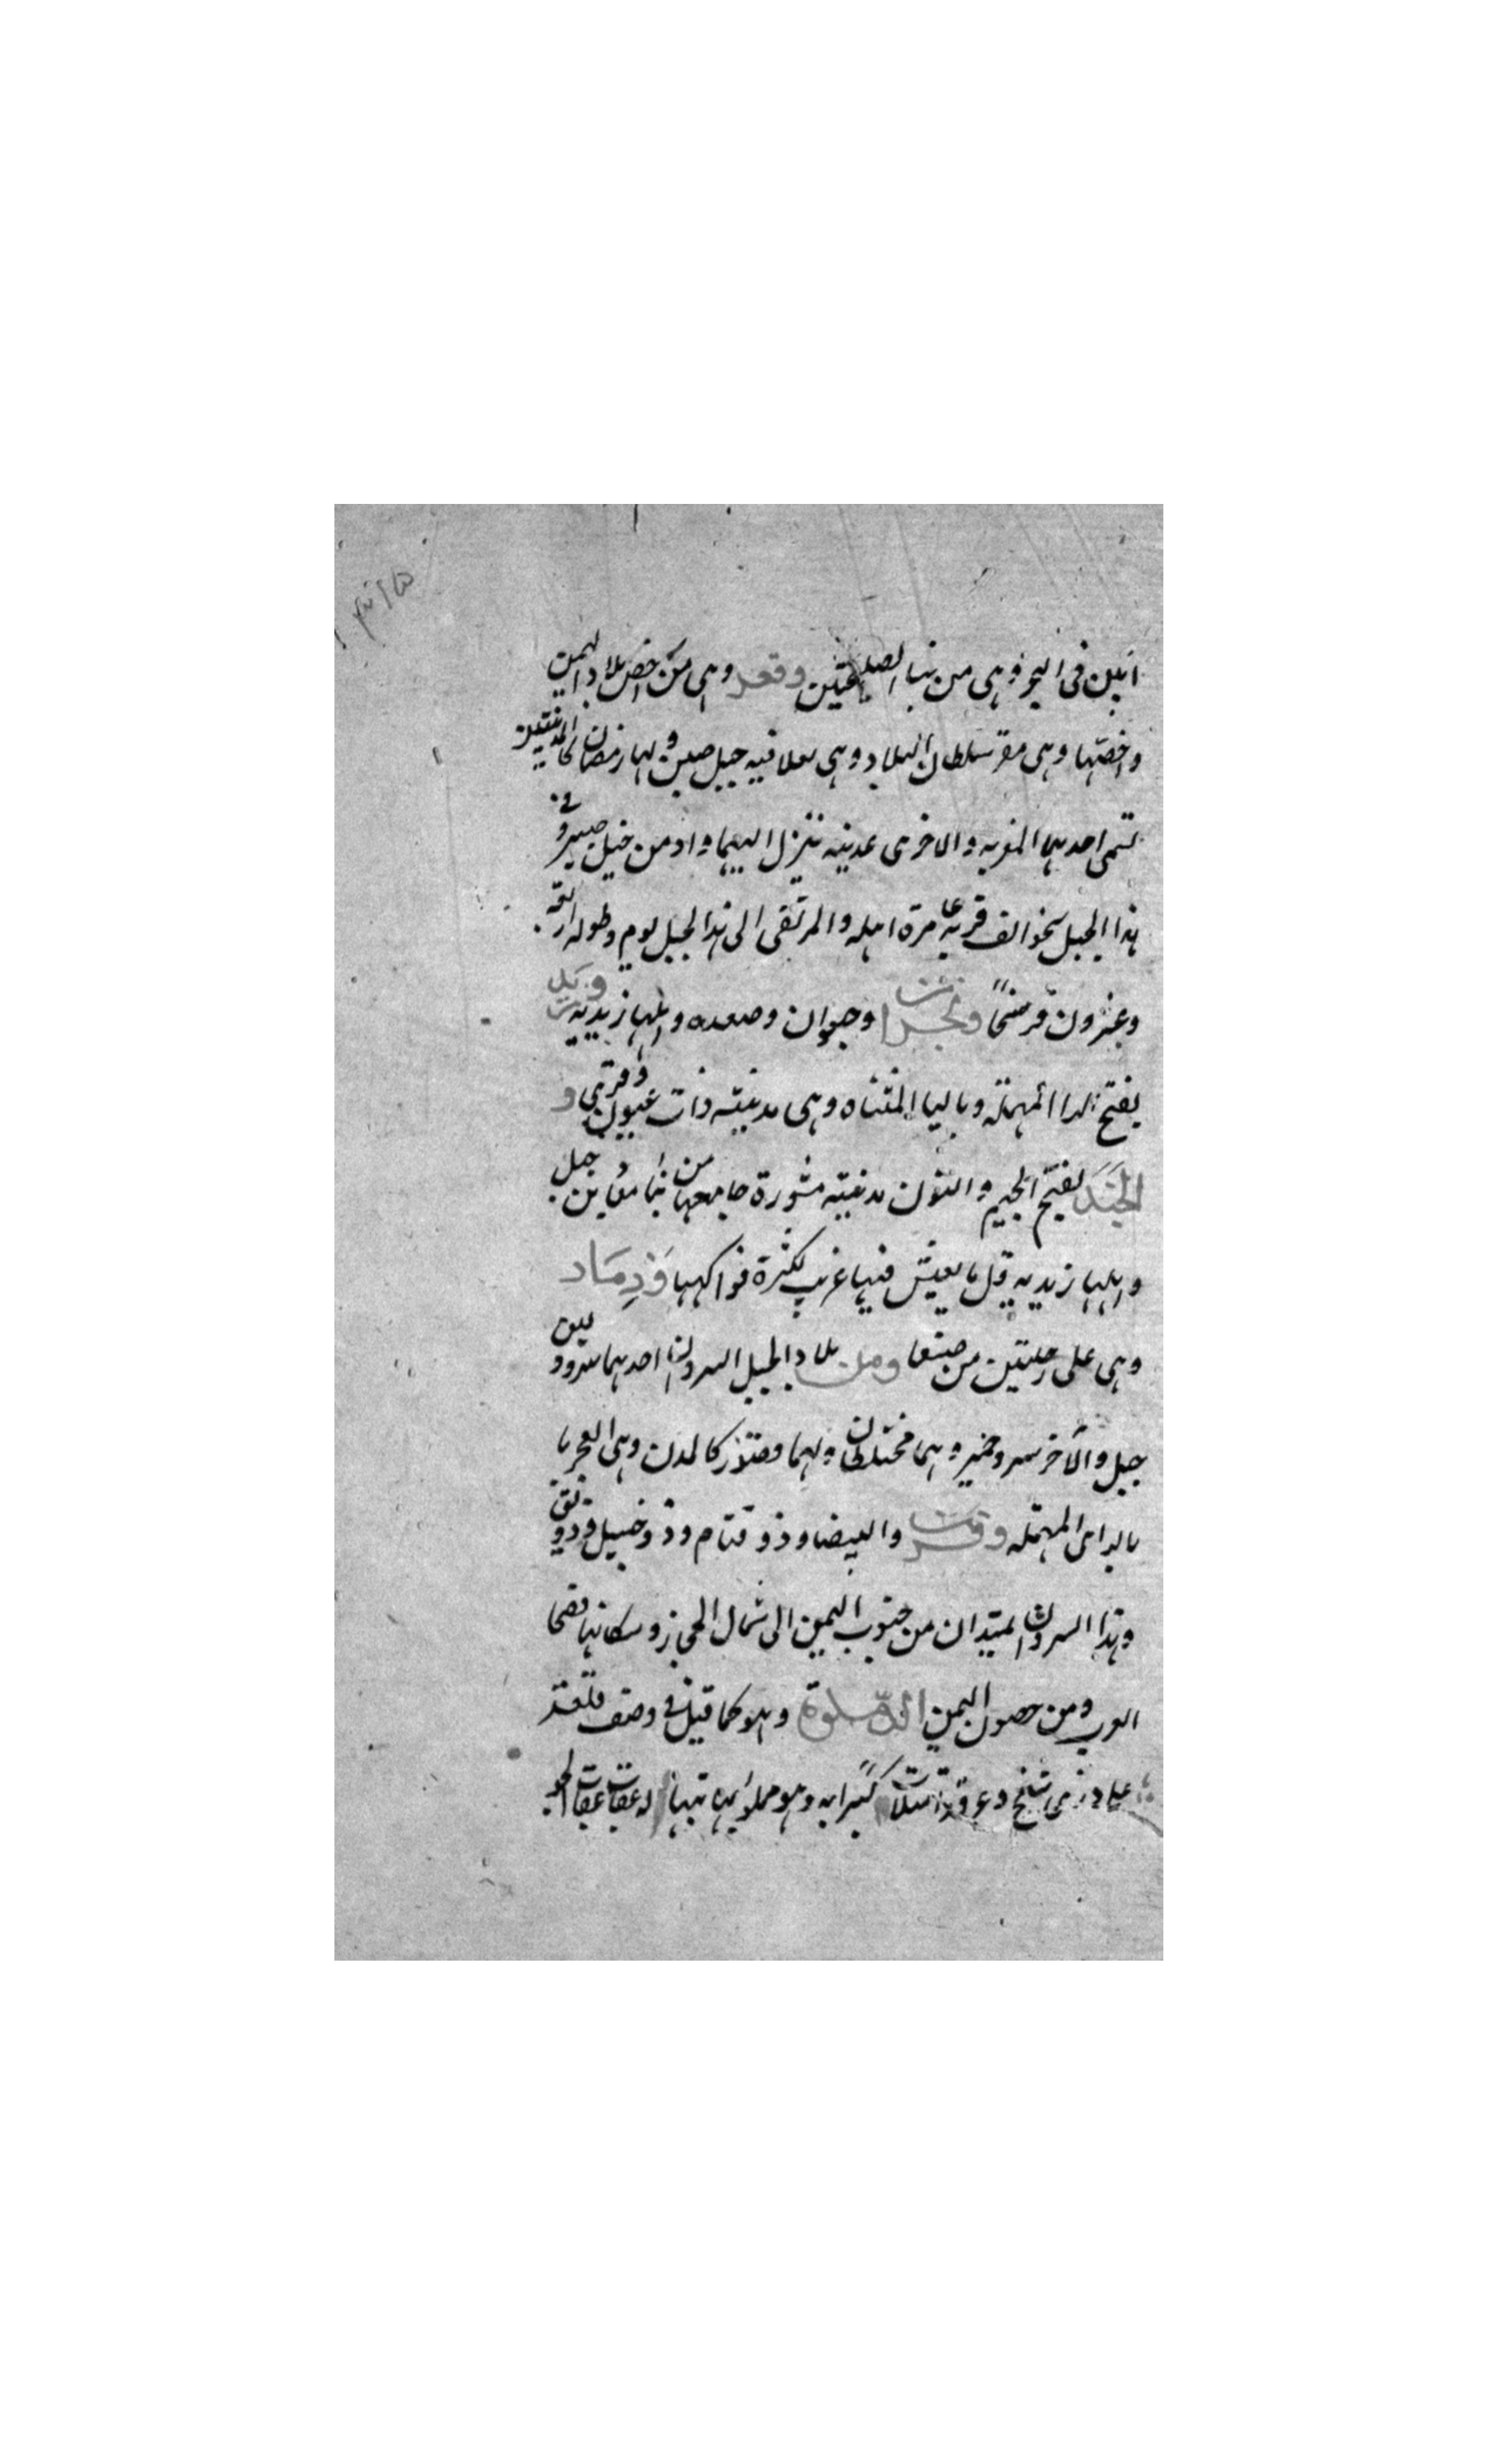 ابين فى البحر وهى من بنا وتعز وهى من اخص بلاد اليمن
واخصّها وهى مقر سلطان البلاد وهى فيه جبل ولها ربضان كالمدينتين
تسمى احديهما المغربه والاخرى عدينه ينزل اليهما واد من جبل صبر وفى
هذا الجبل نحو الف قرية عامرة اهله والمرتقى الى هذا الجبل يوم وطوله اربعة
وعشرون فرسخًا ونجران وجوان وصعده واهلها زيديه
بفتح الدال المهملة وباليا المثناه وهى مدينة ذات عيون وقرى و
الجَنَد بفتح الجيم والنون مدينة مشهورة جامعها من بنا معاذ بن جبل
واهلها زيديه قل ما يعيش فيها غريب لكثرة فواكهها وَذِمَار
وهى على رحلتين من صنعا ومن بلاد الجبل السروان احدهما سرو بين
جبل والاخر سرو حمير وهما مختلطان ولهما كالمدن وهى
بالدال المهمله والبيضا وذو وذو وذو
وهذا السروان الممتدان من جنوب اليمن الى شمال الحجاز وسكانها فصحا
العرب ومن حصون اليمن الدّملوة وهو كما قيل فى وصف قلعة
على ذرى شامخ وعر قد امتلأت كبرا به وهو مملو بها تيها له عقاب عقاب الجو